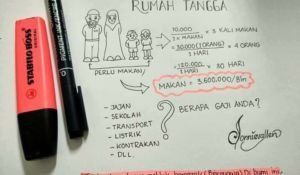 RUMAH TANGGA
STABILO BOSS
ORIGINAL
10.000
1 x MAKAN
x 3 KALI MAKAN
= 30.000 (1 ORANG)
1 HARI
x 4 ORANG
= 120.000
1 HARI
x 30 HARI
PERLU MAKAN
MAKAN = 3.600.000/Bln
- JAJAN
- SEKOLAH
- TRANSPORT
- LISTRIK
- KONTRAKAN
- DLL.
?
BERAPA GAJI ANDA?